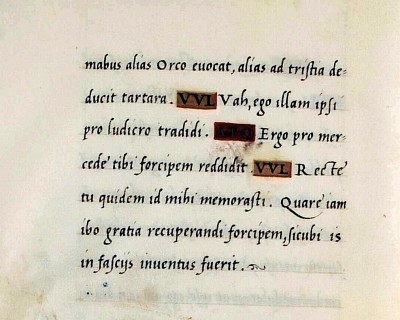 mabus alias Orco euocat, alias ad tristia de-
ducit tartara. VVL Vah, ego illam ipsi
pro ludicro tradidi. Ergo pro mer-
cede tibi forcipem reddidit. VVL Recte
tu quidem id mihi memorasti. Quare iam
ibo gratia recuperandi forcipem, sicubi is
in fascijs inuentus fuerit.